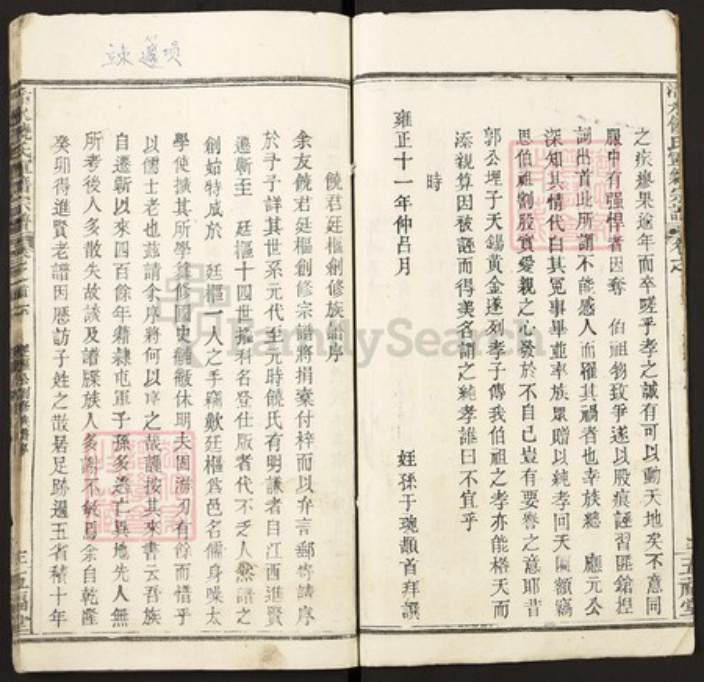 之疾瘳果逾年而卒嗟乎孝之誠有可以動天地矣不意同
服中有强悍者因奪 伯祖物致爭遂以股痕誣習匪鎗捏
詞出首此所謂不能感人而罹其禍者也幸族總 廳元公
深知其情代白其冤事畢並率族眾贈以純孝回天匾額竊
思伯祖割股實愛親之心發於不自己豈有要譽之意耶昔
郭公埋子天錫黃金遂列孝子傳我伯祖之孝亦能格天而
添親算因被誣而得美名謂之純孝誰曰不宜乎
時
雍正十一年仲呂月
姪孫于琬顓首拜譔
饒君廷樞創修族譜序
余友饒君廷樞創修宗譜將捐棗付梓而以弁言郵寄請序
於予予詳其世系元代至元時饒氏有明謙者自江西進賢
遷蘄至 廷樞十四世擢科名登仕版者代不乏人然譜之
創始特成於 廷樞一人之手竊歎廷樞爲邑名儒身噪太
學使擴其所學纂修國史黼黻休明夫固游刃有餘而惜乎
以儒士老也茲請余序將何以序之哉謹按其來書云吾族
自遷蘄以來四百餘年籍隸屯軍子孫多逃亡異地先人無
所考後人多散失故談及譜牒族人多謝不敏焉余自乾隆
癸卯得進賢老譜因歷訪子姓之散居足跡遍五省積十年
FamilySearch